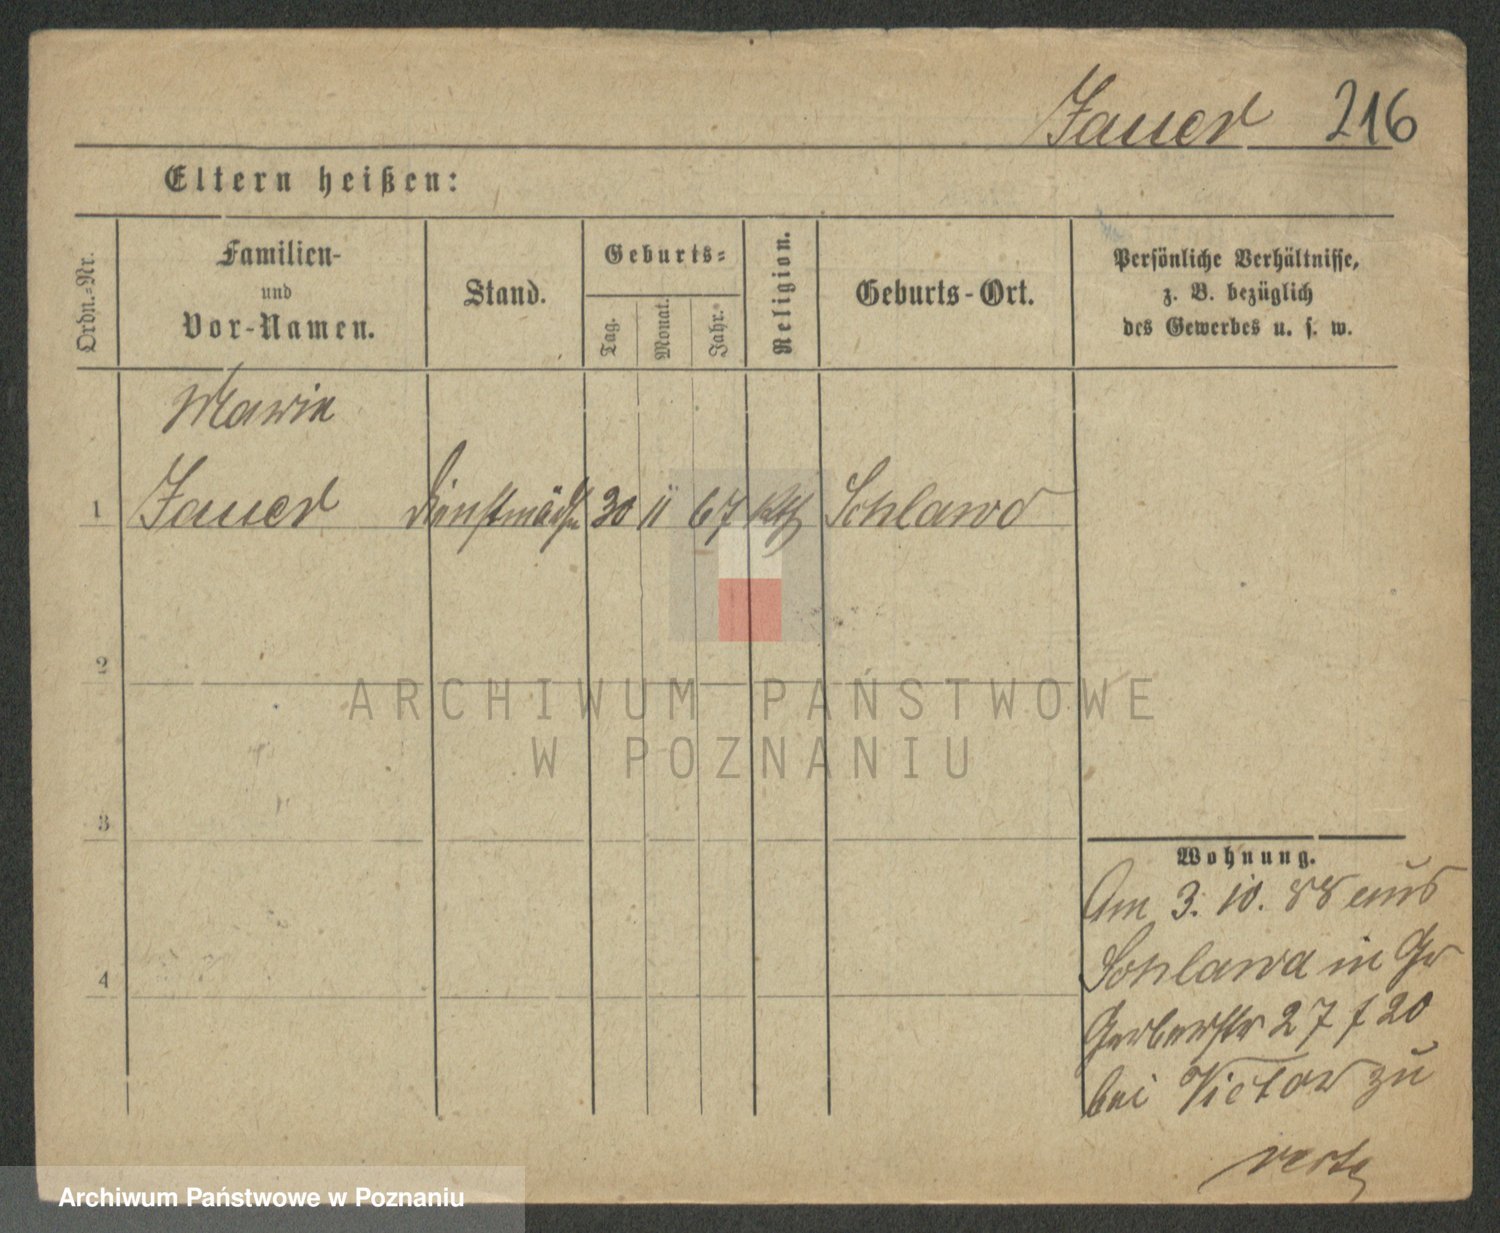 Jauer 216
Eltern heißen:
Ordn.-Nr.
Familien-
und
Vor-Namen.
Stand.
Geburts-
Tag.
Monat.
Jahr.
Religion.
Geburts-Ort.
Persönliche Verhältnisse,
z. B. bezüglich
des Gewerbes u. s. w.
Marie
1 Jauer Dienstmädch 30 11 67 kth Schlawa
2
3
4
Wohnung.
Am 3. 10. 88 aus
Schlawa in Gr
Gerberstr 27 f 20
bei Victor zu
verte
ARCHIWUM PAŃSTWOWE
W POZNANIU
Archiwum Państwowe w Poznaniu